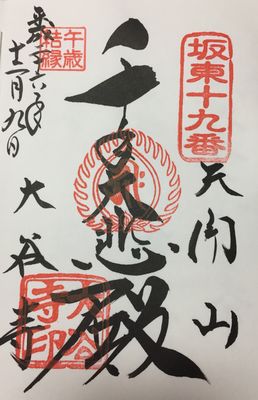 坂東十九番
天開山
千手大悲殿
午歳
結縁
平成二六年
十一月九日
大谷寺
大谷
寺印